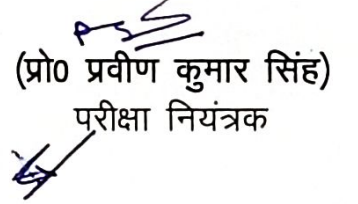 (प्रो0 प्रवीण कुमार सिंह)
परीक्षा नियंत्रक